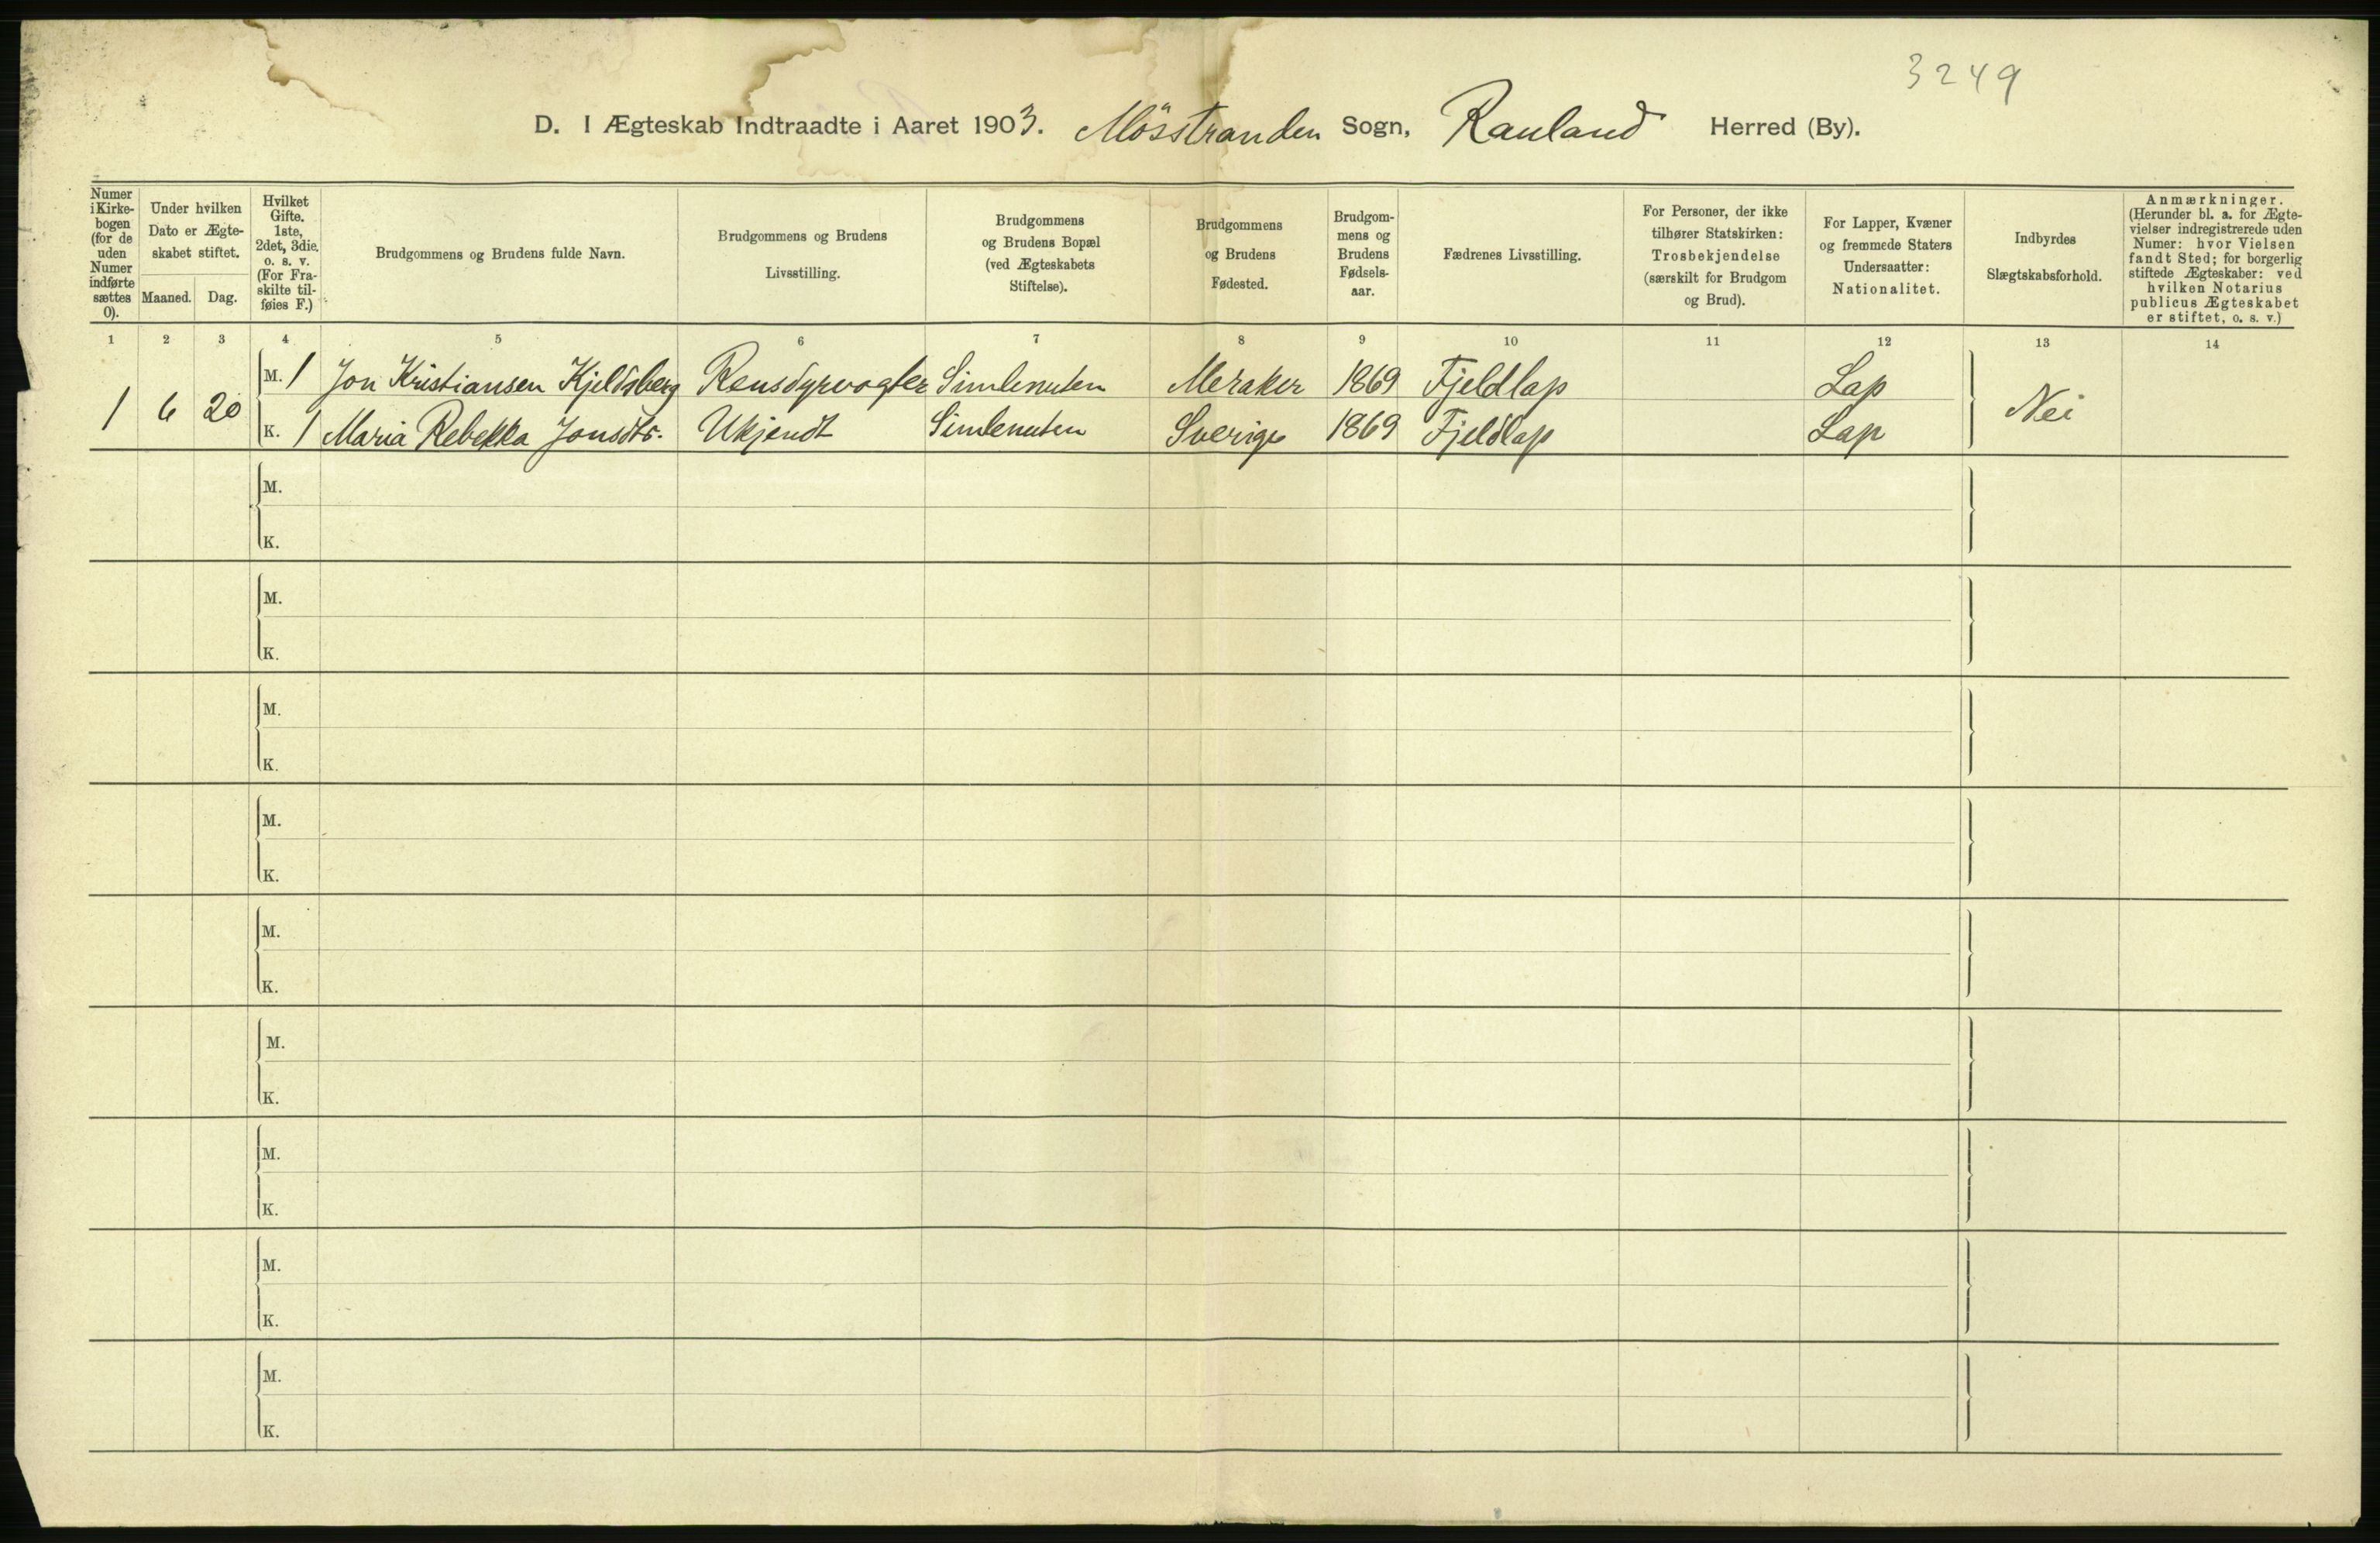 3249
D. I Ægteskab Indtraadte i Aaret 1903. Mösstranden Sogn, Rauland Herred (By).
Numer i Kirke-bogen (for de uden Numer indførte sættes 0).
Under hvilken Dato er Ægte-skabet stiftet.
Maaned. Dag.
Hvilket Gifte. 1ste, 2det, 3die. o. s. v. (For Fra-skilte til-føies F.)
Brudgommens og Brudens fulde Navn.
Brudgommens og Brudens Livsstilling.
Brudgommens og Brudens Bopæl (ved Ægteskabets Stiftelse).
Brudgommens og Brudens Fødested.
Brudgom-mens og Brudens Fødsels-aar.
Fædrenes Livsstilling.
For Personer, der ikke tilhører Statskirken: Trosbekjendelse (særskilt for Brudgom og Brud).
For Lapper, Kvæner og fremmede Staters Undersaatter: Nationalitet.
Indbyrdes Slægtskabsforhold.
Anmærkninger. (Herunder bl. a. for Ægte-vielser indregistrerede uden Numer: hvor Vielsen fandt Sted; for borgerlig stiftede Ægteskaber: ved hvilken Notarius publicus Ægteskabet er stiftet, o. s. v.)
1 2 3 4 5 6 7 8 9 10 11 12 13 14
M. 1 Jon Kristiansen Kjeldsberg Rensdyrvogter Simlenuten Meraker 1869 Fjeldlap Lap
1 6 20 Nei
K. 1 Maria Rebekka Jonsdtr. Ukjendt Simlenuten Sverige 1869 Fjeldlap Lap
M.
K.
M.
K.
M.
K.
M.
K.
M.
K.
M.
K.
M.
K.
M.
K.
M.
K.